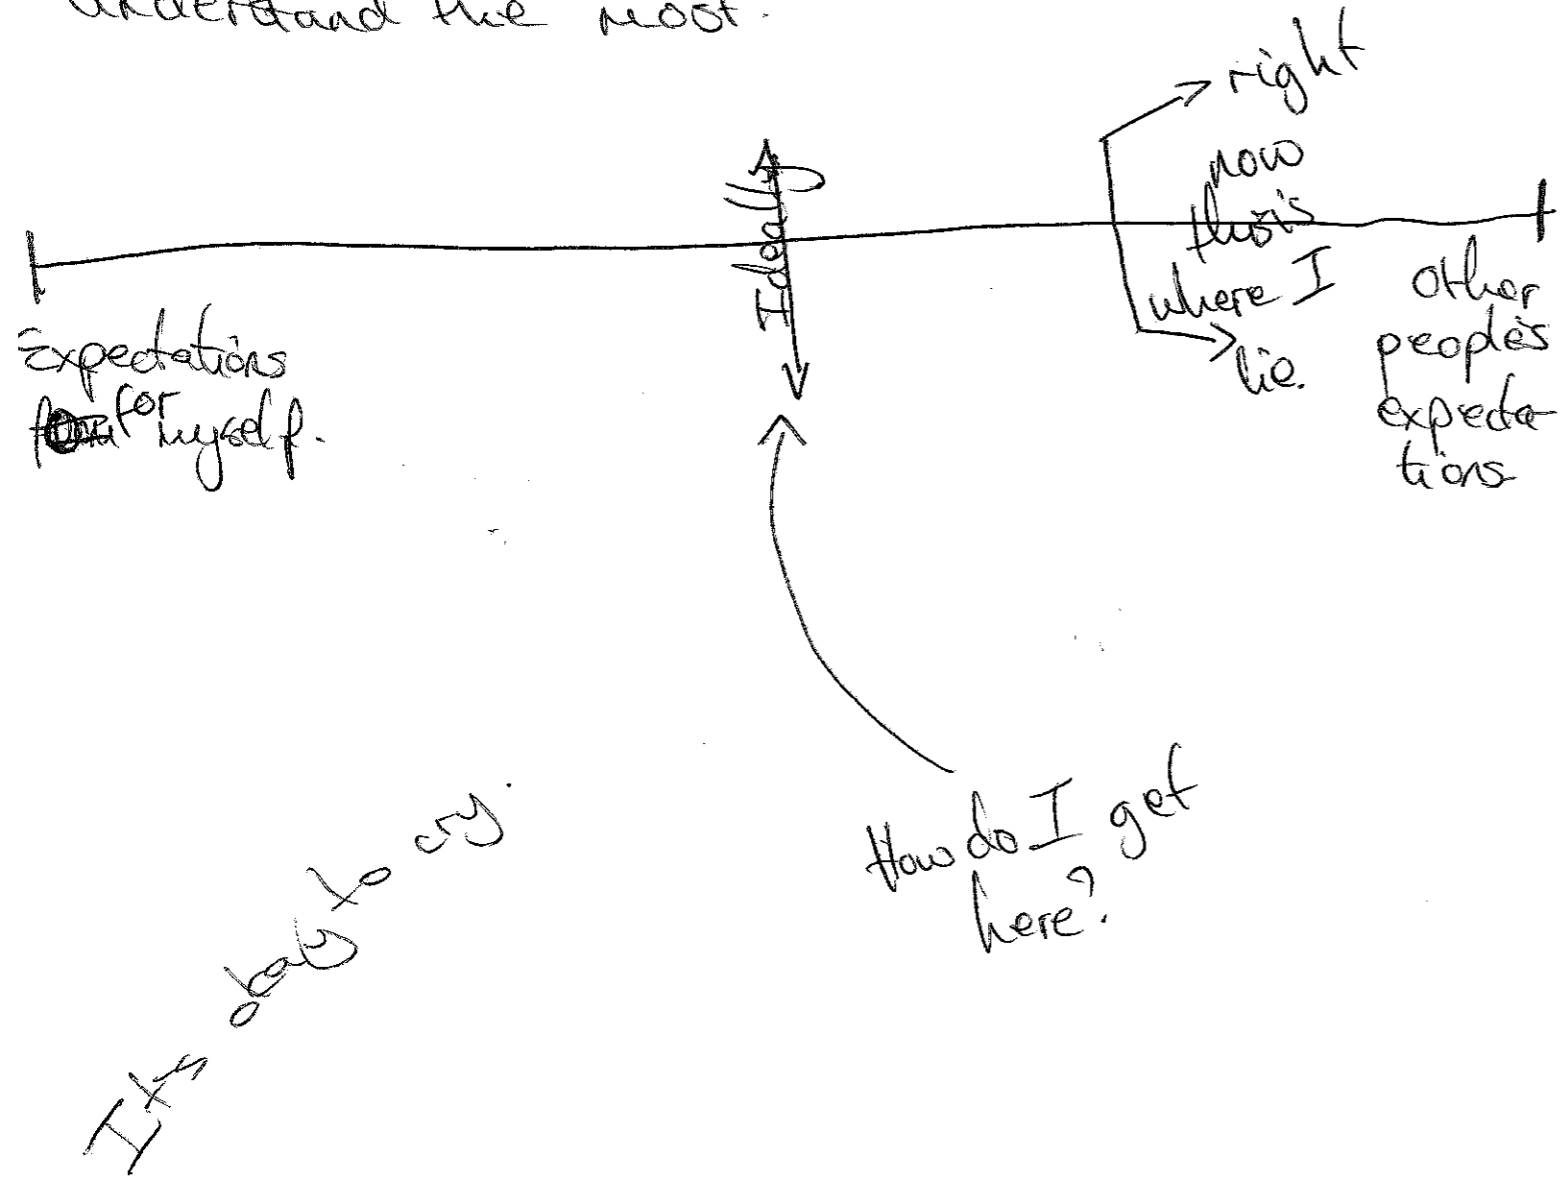 understand the most.
Ideally
right
now
this is
where I
lie.
Expectations
for myself.
Other
people's
expecta-
tions
How do I get
here?
It's okay to cry.